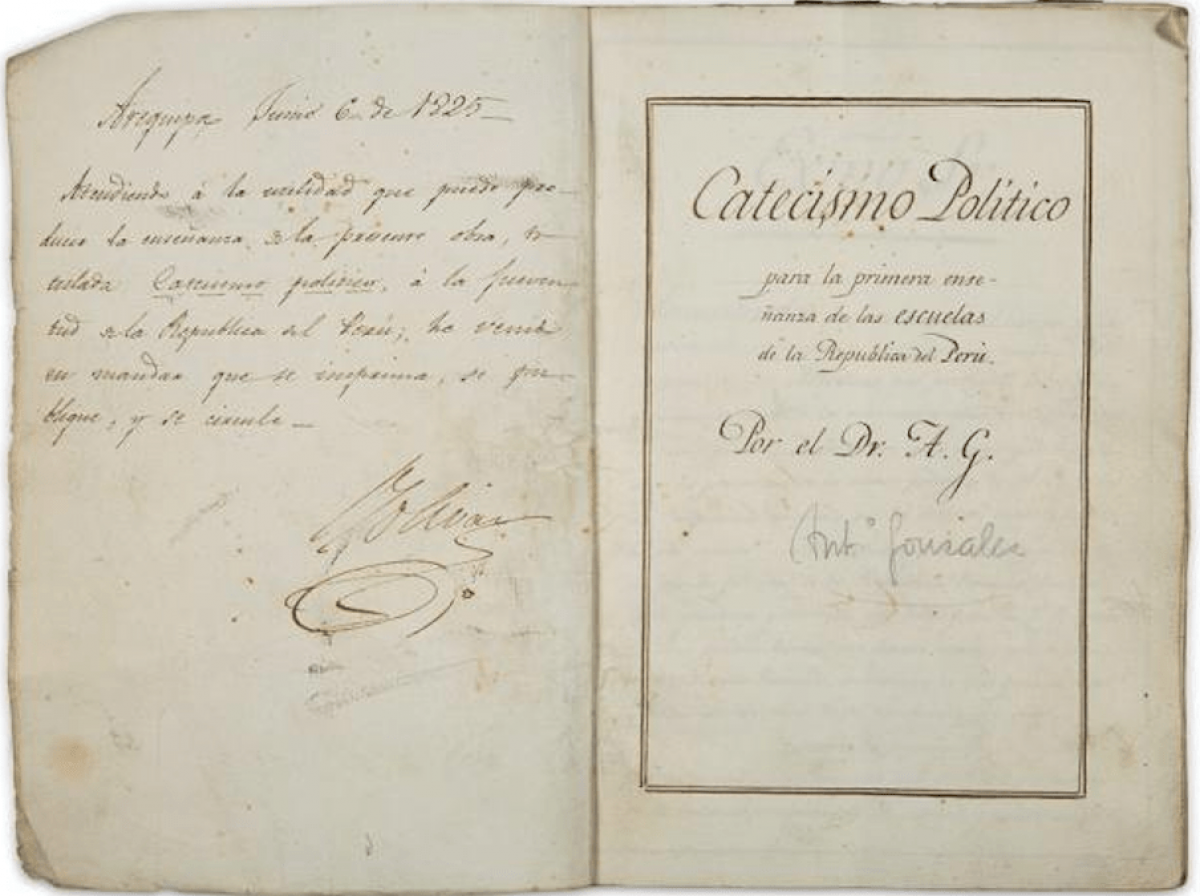 Arequipa Junio 6 de 1825
Atendiendo á la utilidad que puede pro-
ducir la enseñanza de la presente obra, ti-
tulada Catecismo politico, á la juven-
tud de la Republica del Perú; he venido
en mandar que se imprima, se pu-
blique, y se circule
Bolivar
Catecismo Político
para la primera ense-
ñanza de las escuelas
de la Republica del Perú.
Por el Dr. A. G.
Ant.º Gonzalez